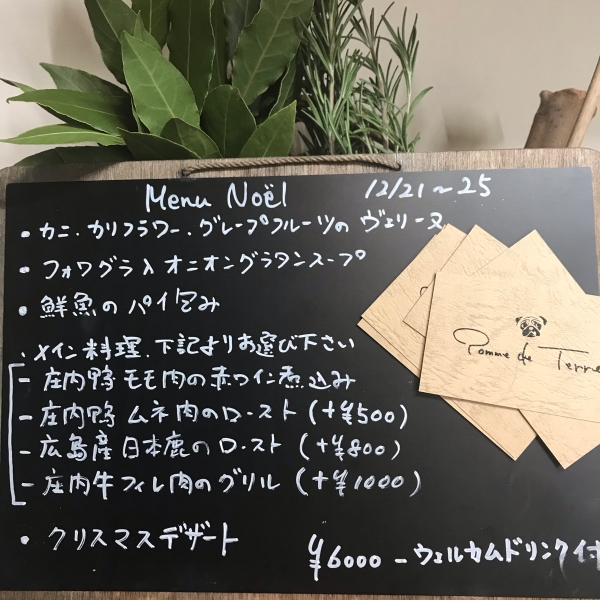 Menu Noël 12/21~25
・カニ・カリフラワー・グレープフルーツの ヴェリーヌ
・フォワグラ入オニオングラタンスープ
・鮮魚のパイ包み
・メイン料理、下記よりお選び下さい
- 庄内鴨 モモ肉の赤ワイン煮込み
- 庄内鴨 ムネ肉のロースト (+¥500)
- 広島産 日本鹿のロースト (+¥800)
- 庄内牛フィレ肉のグリル (+¥1000)
・クリスマスデザート
¥6000 - ウェルカムドリンク付
Pomme de Terre